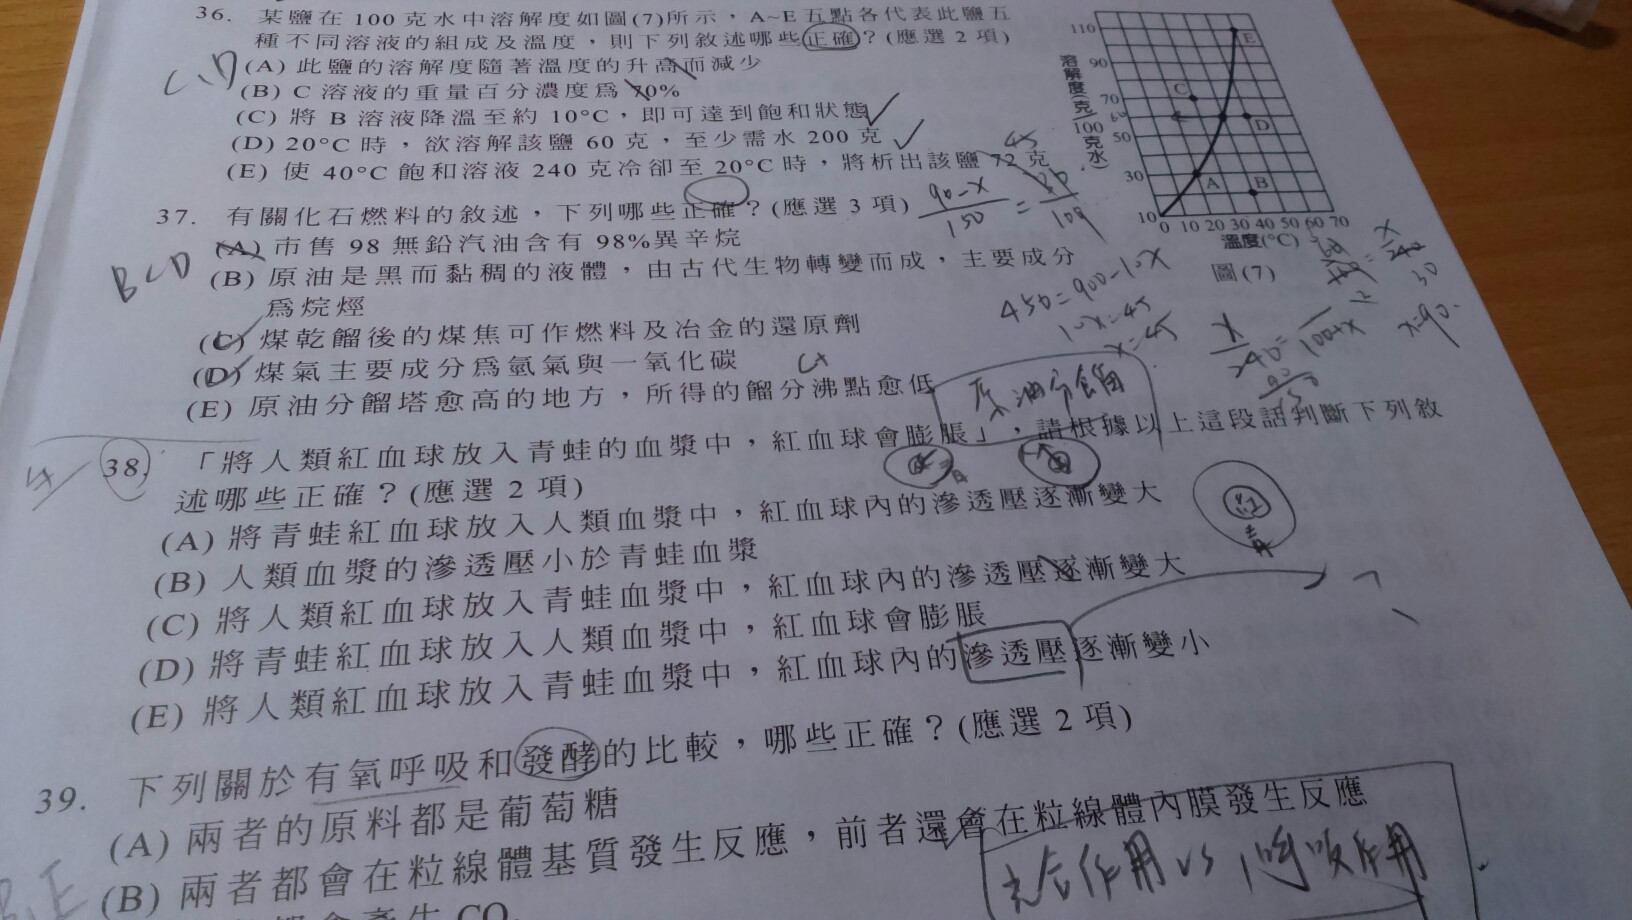 36. 某鹽在100克水中溶解度如圖(7)所示，A~E五點各代表此鹽五
種不同溶液的組成及溫度，則下列敘述哪些正確？(應選2項)
C、D
(A) 此鹽的溶解度隨著溫度的升高而減少
(B) C溶液的重量百分濃度為70%
(C) 將B溶液降溫至約10°C，即可達到飽和狀態
(D) 20°C時，欲溶解該鹽60克，至少需水200克
(E) 使40°C飽和溶液240克冷卻至20°C時，將析出該鹽72克
45
110
90
70
60
50
30
10
溶解度(克/100克水)
E
C
D
A
B
0 10 20 30 40 50 60 70
溫度(°C)
圖(7)
37. 有關化石燃料的敘述，下列哪些正確？(應選3項)
BCD
(A) 市售98無鉛汽油含有98%異辛烷
(B) 原油是黑而黏稠的液體，由古代生物轉變而成，主要成分
為烷烴
(C) 煤乾餾後的煤焦可作燃料及冶金的還原劑
(D) 煤氣主要成分為氫氣與一氧化碳
(E) 原油分餾塔愈高的地方，所得的餾分沸點愈低
90-x
150
=
450=900-10x
10x=45
x=45
x
240
30
x=90
100+x
原油分餾
38. 「將人類紅血球放入青蛙的血漿中，紅血球會膨脹」，請根據以上這段話判斷下列敘
述哪些正確？(應選2項)
(A) 將青蛙紅血球放入人類血漿中，紅血球內的滲透壓逐漸變大
(B) 人類血漿的滲透壓小於青蛙血漿
(C) 將人類紅血球放入青蛙血漿中，紅血球內的滲透壓逐漸變大
(D) 將青蛙紅血球放入人類血漿中，紅血球會膨脹
(E) 將人類紅血球放入青蛙血漿中，紅血球內的滲透壓逐漸變小
紅
青
39. 下列關於有氧呼吸和發酵的比較，哪些正確？(應選2項)
(A) 兩者的原料都是葡萄糖
(B) 兩者都會在粒線體基質發生反應，前者還會在粒線體內膜發生反應
光合作用 vs 呼吸作用
都會產生CO